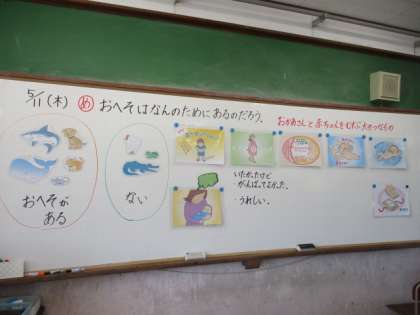 5/11(木) め おへそはなんのためにあるのだろう。
おかあさんと赤ちゃんをむすぶ大せつなもの
おへそが
ある
ない
いたかったけど
がんばってよかった。
・うれしい。